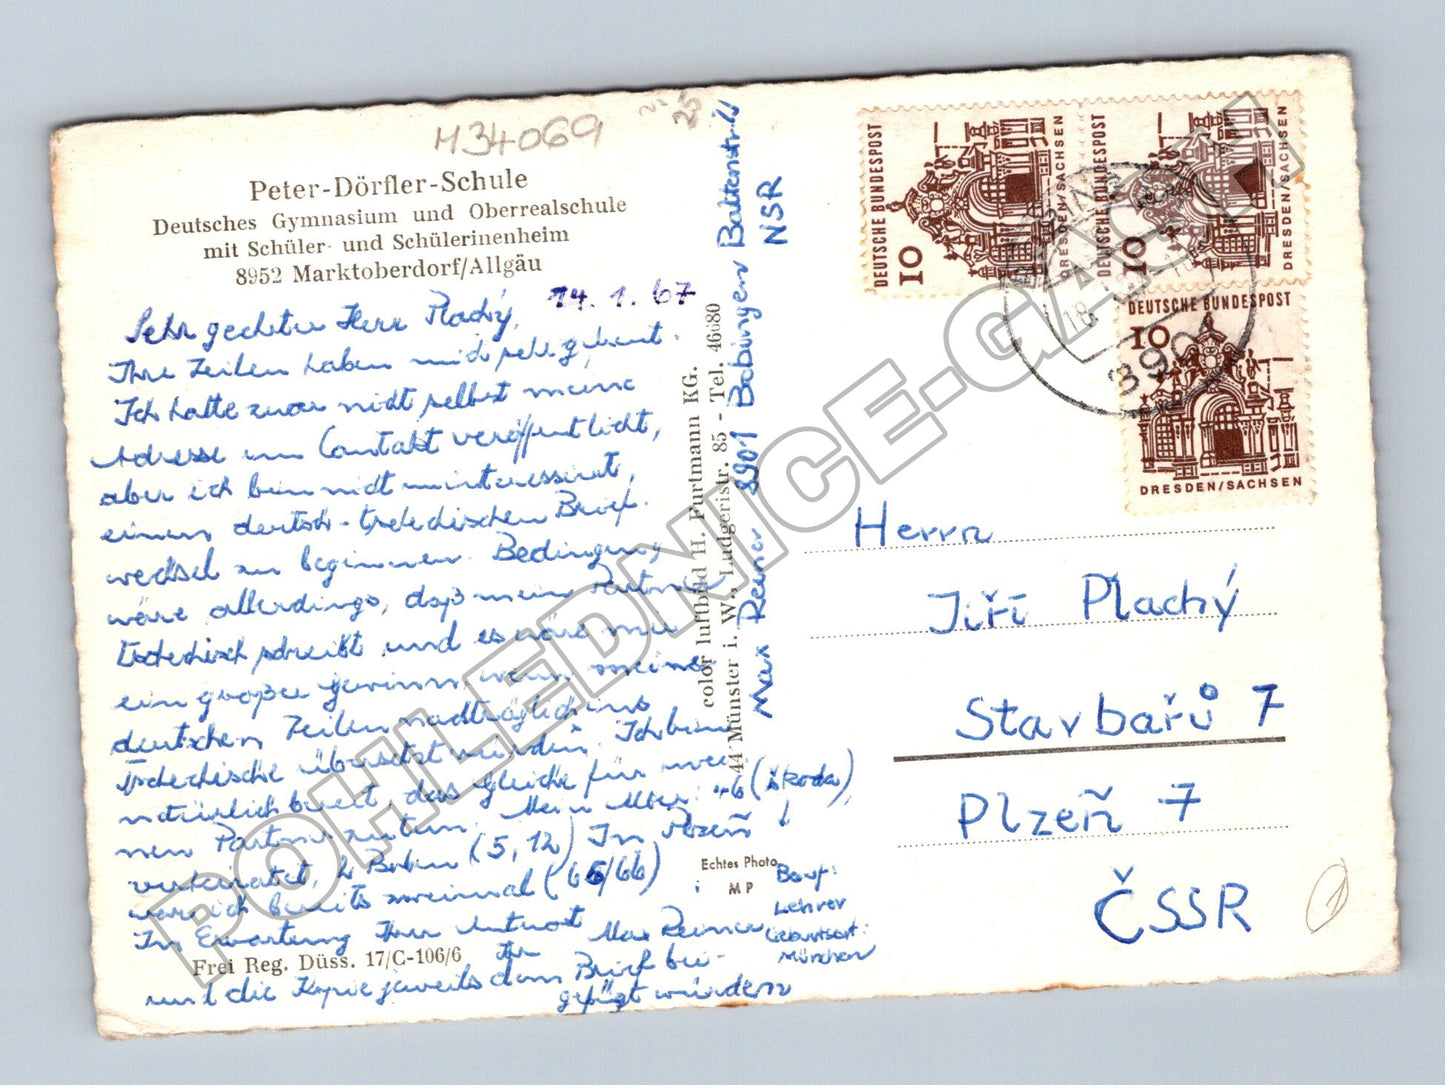 H34069
25
Peter-Dörfler-Schule
Deutsches Gymnasium und Oberrealschule
mit Schüler- und Schülerinenheim
8952 Marktoberdorf/Allgäu
14. 1. 67
Sehr geehrter Herr Plachý,
Ihre Zeilen haben mich sehr gefreut.
Ich hatte zwar nicht selbst meine
Adresse im Contakt veröffentlicht,
aber ich bin nicht uninteressiert,
einen deutsch-tschechischen Brief-
wechsel zu beginnen. Bedingung
wäre allerdings, daß mein Partner
tschechisch schreibt und es wäre mir
ein großer Gewinn, wenn meine
deutschen Zeilen nachträglich ins
Tschechische übersetzt würden
und die Kopie jeweils dem Brief bei-
gefügt würden
Ich bin
natürlich bereit, das Gleiche für mei-
nen Partner zu tun. Mein Alter: 46 (Škoda)
verheiratet, 2 Buben (5, 12) In Plzeň
war ich bereits zweimal (65/66) !
In Erwartung Ihrer Antwort
Ihr Max Reiner
Beruf:
Lehrer
Geburtsort:
München
Frei Reg. Düss. 17/C-106/6
color luftbild H. Furtmann KG.
44 Münster i. W., Ludgeristr. 85 - Tel. 46680
Max Reiner 8901 Bobingen
NSR
Echtes Photo
MP
DEUTSCHE BUNDESPOST
10
DRESDEN/SACHSEN
DEUTSCHE BUNDESPOST
10
DRESDEN/SACHSEN
DEUTSCHE BUNDESPOST
10
DRESDEN/SACHSEN
18.
890
Herrn
Jiří Plachý
Stavbařů 7
Plzeň 7
ČSSR
1
POHLEDNICE-GALAXIE